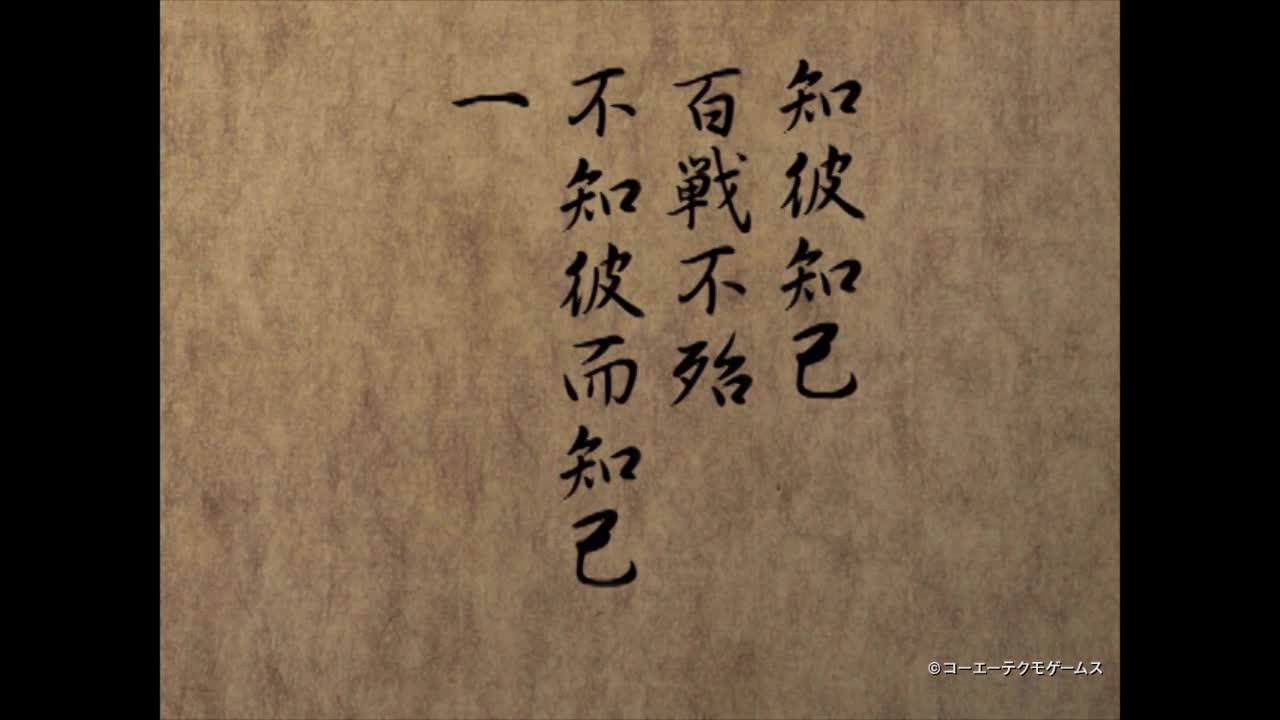 知彼知己
百戦不殆
不知彼而知己
一
©コーエーテクモゲームス